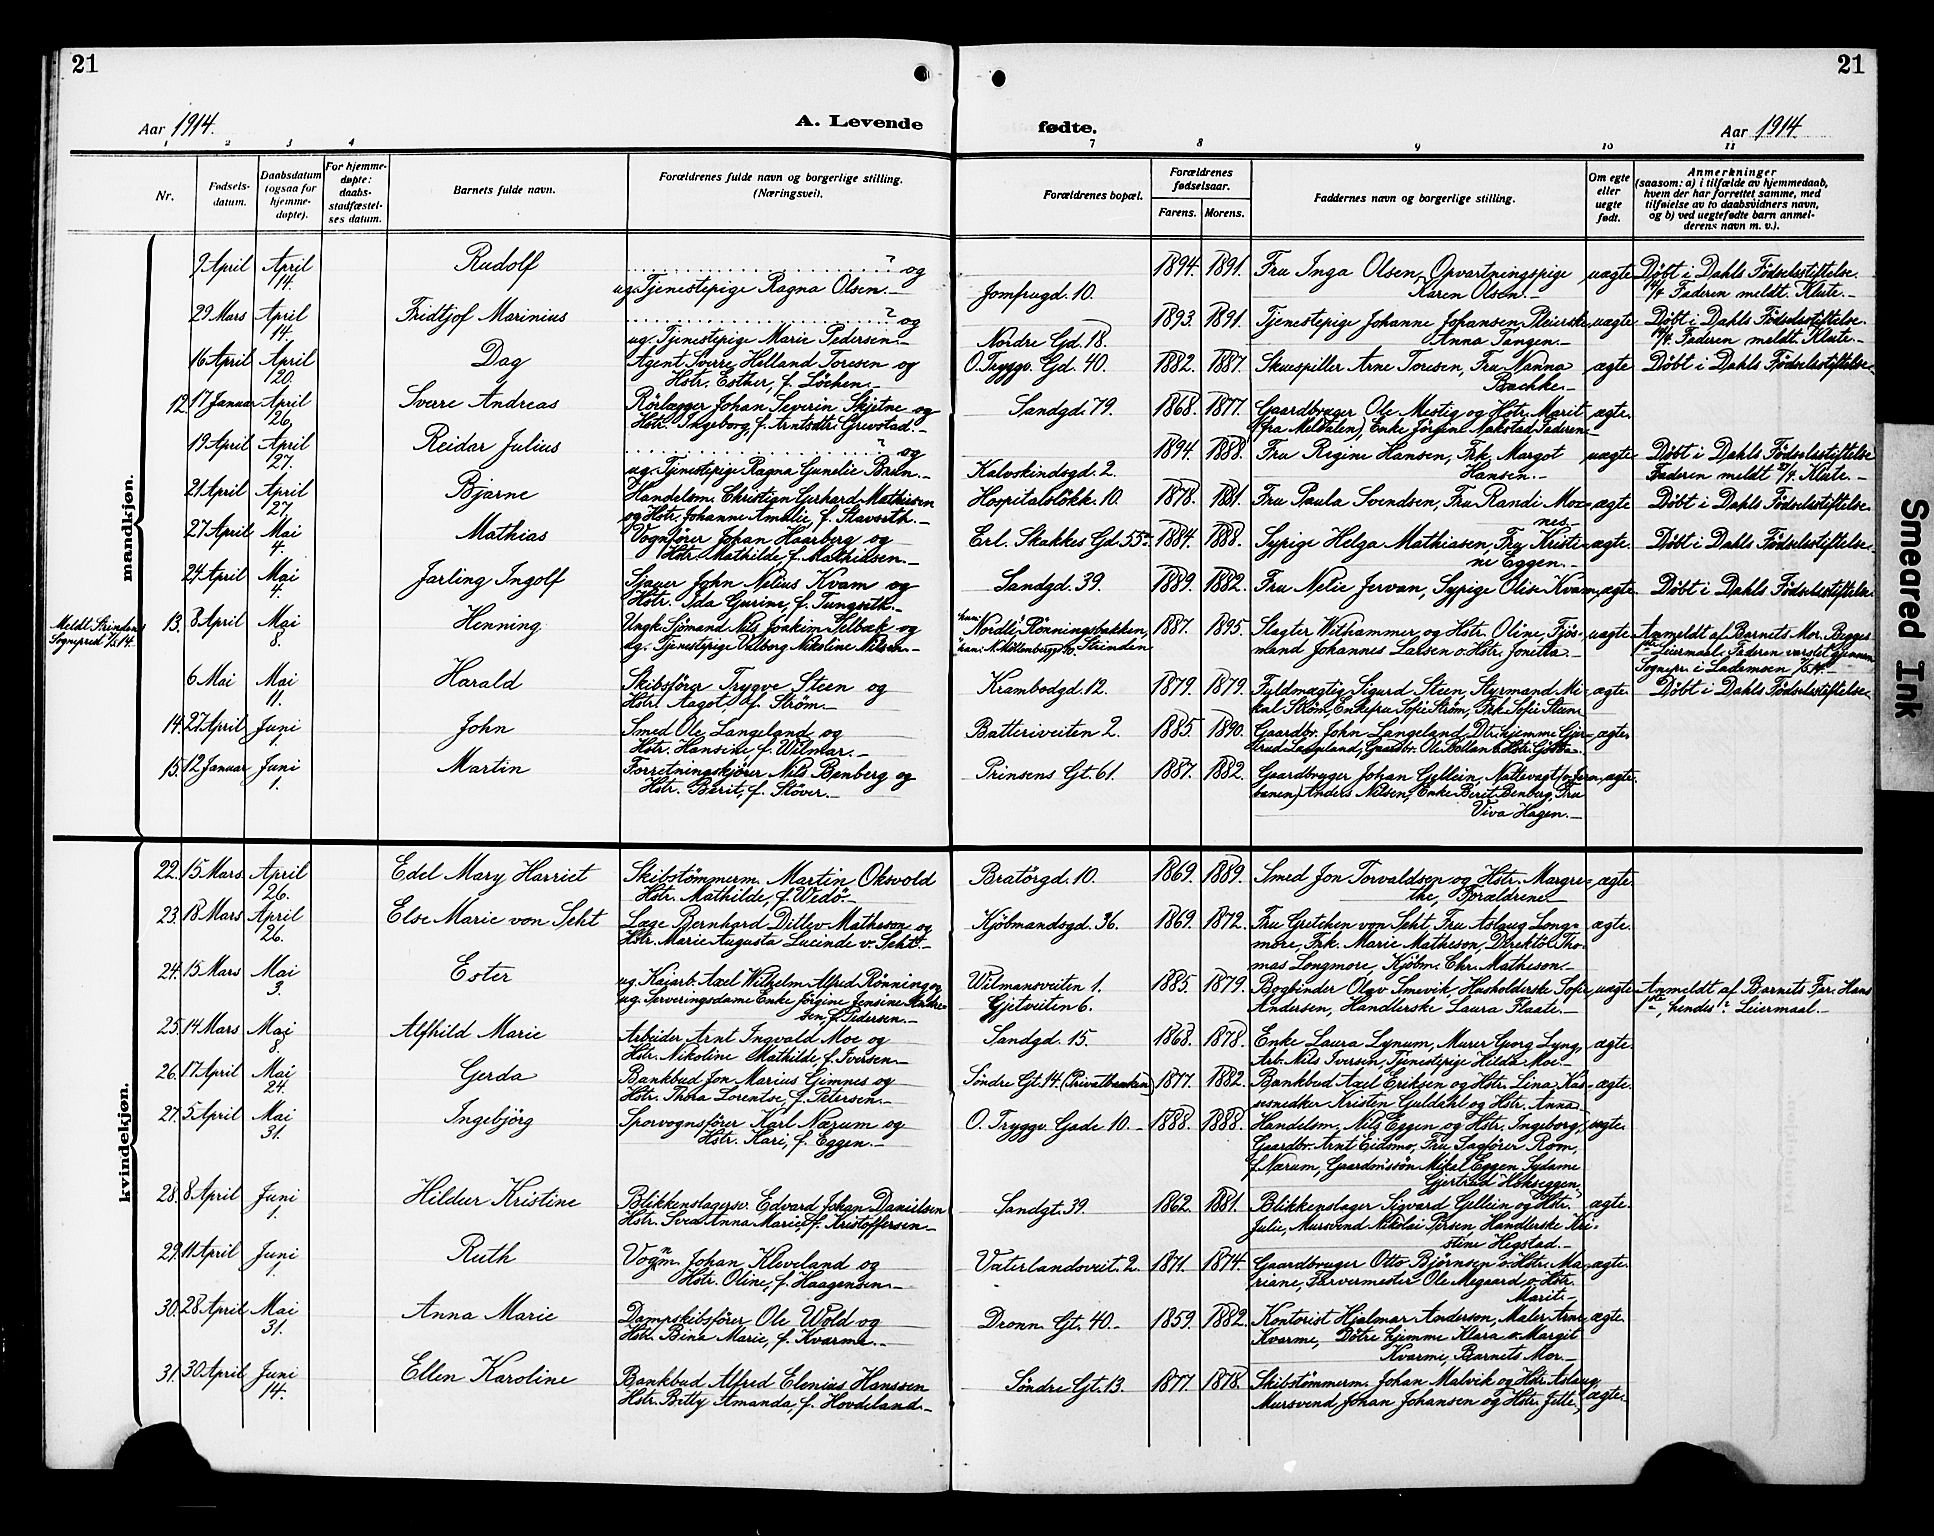 21
21
Aar 1914.
A. Levende
fødte.
Aar 1914.
1 2 3 4 7 8 9 10 11
Nr.
Fødsels-
datum.
Daabsdatum
(ogsaa for
hjemme-
døpte).
For hjemme-
døpte:
daabs-
stadfæstel-
ses datum.
Barnets fulde navn.
Forældrenes fulde navn og borgerlige stilling.
(Næringsvei).
Forældrenes bopæl.
Forældrenes
fødselsaar.
Farens. Morens.
Faddernes navn og borgerlige stilling.
Om egte
eller
uegte
født.
Anmerkninger
(saasom: a) i tilfælde av hjemmedaab,
hvem der har forrettet samme, med
tilføielse av to daabsvidners navn,
og b) ved uegtefødte barn anmel-
derens navn m. v.).
mandkjøn.
9 April April 14. Rudolf ? og
ug. Tjenestepige Ragna Olsen.
Jomfrugd. 10. 1894. 1891. Fru Inga Olsen, Opvartningspige
Karen Olsen.
uægte Døbt i Dahls Fødselsstiftelse.
14/4 Faderen meldt. Klute.
29 Mars April 14. Fridtjof Marinius ? og
ug. Tjenestepige Marie Pedersen.
Nordre Gd. 18. 1893. 1891. Tjenestepige Johanne Johansen, Pleierske
Anna Tangen.
uægte Døbt i Dahls Fødselsstiftelse.
14/4 Faderen meldt Klute.
16 April April 20. Dag Agent Sverre Helland Toresen og
Hstr. Esther, f. Løchen.
O. Tryggv. Gd. 40. 1882. 1887. Skuespiller Arne Toresen, Fru Nanna
Bachke.
ægte Døbt i Dahls Fødselsstiftelse.
12. 17 Januar April 26. Sverre Andreas Rörlægger Johan Severin Skjetne og
Hstr. Ingeborg, f. Arntsdtr. Grevstad.
Sandgd. 79. 1868. 1877. Gaardbruger Ole Mestig og Hstr. Marit
(fra Meldalen), Enke Jörgine Nakstad, Faderen.
ægte.
19 April April 27. Reidar Julius ? og
ug. Tjenestepige Ragna Gunelie Brun.
Kalvskindsgd. 2. 1894 1888. Fru Regine Hansen, Frk. Margot
Hansen.
uægte Døbt i Dahls Fødselsstiftelse
Faderen meldt 27/4. Klute.
21 April April 27. Bjarne Handelsm. Christian Gerhard Mathisen
og Hstr. Johanne Amalie, f. Stavseth.
Hospitalslökk. 10. 1878. 1881. Fru Paula Svendsen, Fru Randi Moe-
nes.
ægte Døbt i Dahls Fødselsstiftelse.
27 April Mai 4. Mathias Vognfører Johan Haarberg og
Hstr. Mathilde, f. Mathiasen.
Erl. Skakkes Gd. 55 1884. 1888. Sypige Helga Mathiasen, Fru Kristi-
ne Eggen.
ægte. Døbt i Dahls Fødselsstiftelse.
24 April Mai 4. Jarling Ingolf Sjauer John Nelius Kvam og
Hstr. Ida Gurine, f. Tungseth.
Sandgd. 39. 1889. 1882. Fru Nelie Jervan, Sypige Olise Kvam,
ægte Døbt i Dahls Fødselsstiftelse.
Meldt Strindens
Sognepræst
13. 8 April Mai 8. Henning Ungk. Sjömand Nils Joakim Selbæk og
ug. Tjenestepige Valborg Nikoline Nilsen.
Nordli, Rönningsbakken,
Strinden
1887. 1895. Slagter Withammer og Hstr. Oline, Fjøs-
mand Johannes Larsen o. Hstr. Jonetta.
uægte Anmeldt af Barnets Mor. Begges
1ste Leiermaal. Faderen varslet gjennem
Sognepr. i Lademoen
6 Mai Mai 11. Harald Skibsförer Trygve Steen og
Hstr. Aagot, f. Strøm.
Krambodgd. 12. 1879. 1879. Fuldmægtig Sigurd Steen, Styrmand Mi-
kal Strøm, Enkefru Sofie Strøm, Frk. Sofie Steen
ægte. Døbt i Dahls Fødselsstiftelse.
14. 27 April Juni 1. John Smed Ole Langeland og
Hstr. Hansine, f. Wilmar.
Batteriveiten 2. 1885. 1890. Gaardbr. John Langeland, Dtr. hjemme Gjer-
trud Langeland, Gaardbr. Ole
ægte.
15. 12 Januar Juni 1. Martin Forretningskjører Nils Benberg og
Hstr. Berit, f. Støver.
Prinsens Gt. 61. 1887. 1882. Gaardbruger Johan Gellein, Nattevagt (v. Jern-
banen) Anders Nilsen, Enke Berit Benberg, Fru
Viva Hagen.
ægte.
kvindekjøn.
22. 15 Mars April 26. Edel Mary Harriet Skibstømmerm. Martin Oksvold
Hstr. Mathilde, f. Wedö.
Bratörgd. 10. 1869. 1889. Smed Jon Torvaldsen og Hstr. Margre-
the, Forældrene
ægte.
23. 18 Mars April 26. Else Marie von Seht Læge Bernhard Ditlev Matheson og
Hstr. Marie Augusta Lucinde v. Seht.
Kjöbmandsgd. 36. 1869. 1872. Fru Gretchen von Seht, Fru Aslaug Long-
more, Frk. Marie Matheson, Direktör Tho-
mas Longmore, Kjöbm. Chr. Matheson.
ægte.
24. 15 Mars Mai 3. Ester ug. Kaiarb. Axel Wilhelm Alfred Rönning og
ug. Serveringsdame Enke Jörgine Jensine
sen f. Pedersen.
Wilmansveiten 1.
Gjetveiten 6.
1885. 1879. Bogbinder Olav Smevik, Husholderske Sofie
Andersen, Handlerske Laura Flaate.
uægte Anmeldt af Barnets Far. Hans
1ste, hendes ? Leiermaal.
25. 14 Mars Mai 8. Alfhild Marie Arbeider Arnt Ingvald Moe og
Hstr. Nikoline Mathilde f. Iversen.
Sandgd. 15. 1868. 1878. Enke Laura Lynum, Murer Georg Lyng,
Arb. Nils Iversen, Tjenestepige Hilda Moe.
ægte.
26. 17 April Mai 24. Gerda Bankbud Jon Marius Gimnes og
Hstr. Thora Lorentse, f. Petersen.
Søndre Gt. 14. (Privatbanken) 1877. 1882. Bankbud Axel Eriksen og Hstr. Lina, Kas-
sesnedker Kristen Guldahl og Hstr. Anna
ægte.
27. 5 April Mai 31. Ingebjörg Sporvognsfører Karl Nærum og
Hstr. Kari, f. Eggen.
O. Tryggv. Gade 10. 1888. 1888. Handelsm. Nils Eggen og Hstr. Ingeborg,
Gaardbr. Arnt Eidsmo, Fru Sagfører Rom,
f. Nærum, Gaardmssøn Mikal Eggen, Sydame
Gjertrud Hokseggen.
ægte.
28. 8 April Juni 1. Hildur Kristine Blikkenslagersv. Edvard Johan Danielsen
Hstr. Anna Marie, f. Kristoffersen.
Sandgt. 39. 1862. 1881. Blikkenslager Sigvard Gellein og Hstr.
Julie, Mursvend Nikolai Persen, Handlerske Kri-
stine Hegstad.
ægte.
29. 11 April Juni 1. Ruth Vognm. Johan Kleveland og
Hstr. Oline, f. Haagensen.
Vaterlandsveit. 2. 1871. 1874. Gaardbruger Otto Bjørnsen o. Hstr. Ma-
riane, Farvermester Ole Megaard o. Hstr.
Marit.
ægte.
30. 28 April Mai 31. Anna Marie Dampskibsfører Ole Wold og
Hstr. Bina Marie, f. Kvarme.
Dronn. Gt. 40. 1859. 1882. Kontorist Hjalmar Anderson, Maler Arne
Kvarme, Døtre hjemme Klara o. Margit
Kvarme, Barnets Mor.
ægte.
31. 30 April Juni 14. Ellen Karoline Bankbud Alfred Elenius Hanssen
Hstr. Betty Amanda, f. Hovdeland.
Søndre Gt. 13. 1877. 1878. Skibstømmerm. Johan Malvik og Hstr. Aslaug,
Mursvend Johan Johansen og Hstr. Jette,
ægte.
Smeared Ink